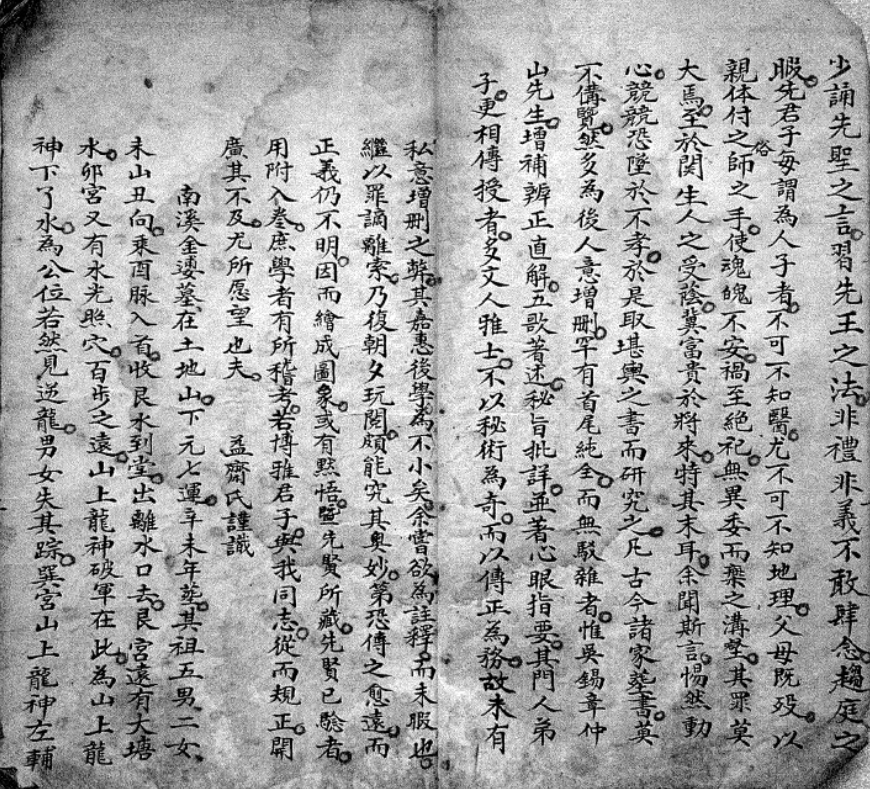 少誦先聖之言習先王之法非禮非義不敢肆念趨庭之
暇先君子每謂為人子者不可不知醫尤不可不知地理父母既歿以
親体付之俗師之手使魂魄不安禍至絕祀無異委而棄之溝壑其罪莫
大焉至於関生人之受蔭冀富貴於將來特其末耳余聞斯言惕然動
心競競恐墜於不孝於是取堪輿之書而研究之凡古今諸家葬書莫
不備覽然多為後人意增刪罕有首尾純全而無駁雜者惟吳錫章仲
山先生增補辨正直解五歌著述秘旨批詳並著心眼指要其門人弟
子更相傳授者多文人雅士不以秘術為奇而以傳正為務故未有
私意增刪之弊其嘉惠後學為不小矣余嘗欲為註釋而未暇也
繼以罪謫離索乃復朝夕玩閱頗能究其奧妙第恐傳之愈遠而
正義仍不明因而繪成圖象或有默悟暨先賢所藏先賢已驗者
用附入卷庶學者有所稽考若博雅君子與我同志從而規正開
廣其不及尤所愿望也夫 益齋氏謹識
南溪金墓在土地山下元七運辛未年葬其祖五男二女
未山丑向乘酉脉入首收艮水到堂出離水口去艮宮遠有大塘
水卯宮又有水光照穴百步之遠山上龍神破軍在此為山上龍
神下了水為公位若然見逆龍男女失其踪巽宮山上龍神左輔